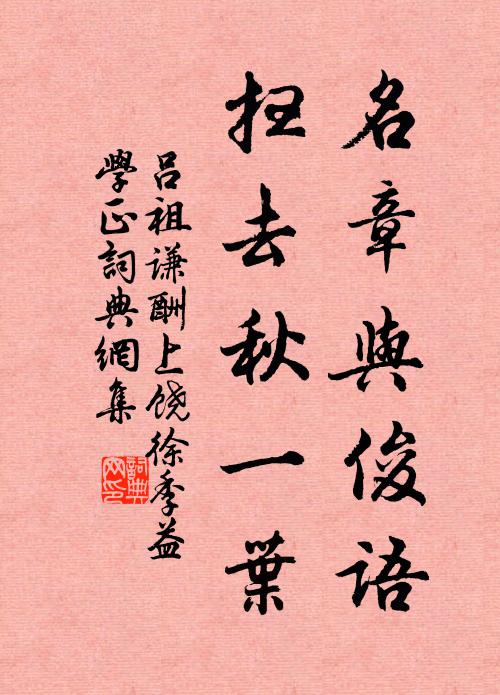 名章與俊語
扫去秋一葉
吕祖谦酬上饶徐季益
學正詞典網集
詞典網印